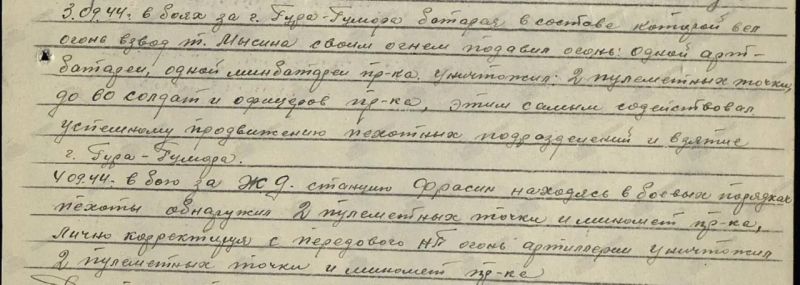 3.09.44г. в боях за г. Гура-Гумора батарея в составе которой вел
огонь взвод т. Мысина своим огнем подавил огонь: одной арт-
батареи, одной минбатареи пр-ка. уничтожил: 2 пулеметных точки,
до 60 солдат и офицеров пр-ка, этим самым содействовал
успешному продвижению пехотных подразделений и взятие
г. Гура-Гумора.
4.09.44г. в бою за Ж.Д. станцию Фрасин находясь в боевых порядках
пехоты обнаружил 2 пулеметных точки и миномет пр-ка,
лично корректируя с передового НП огонь артиллерии уничтожил
2 пулеметных точки и миномет пр-ка